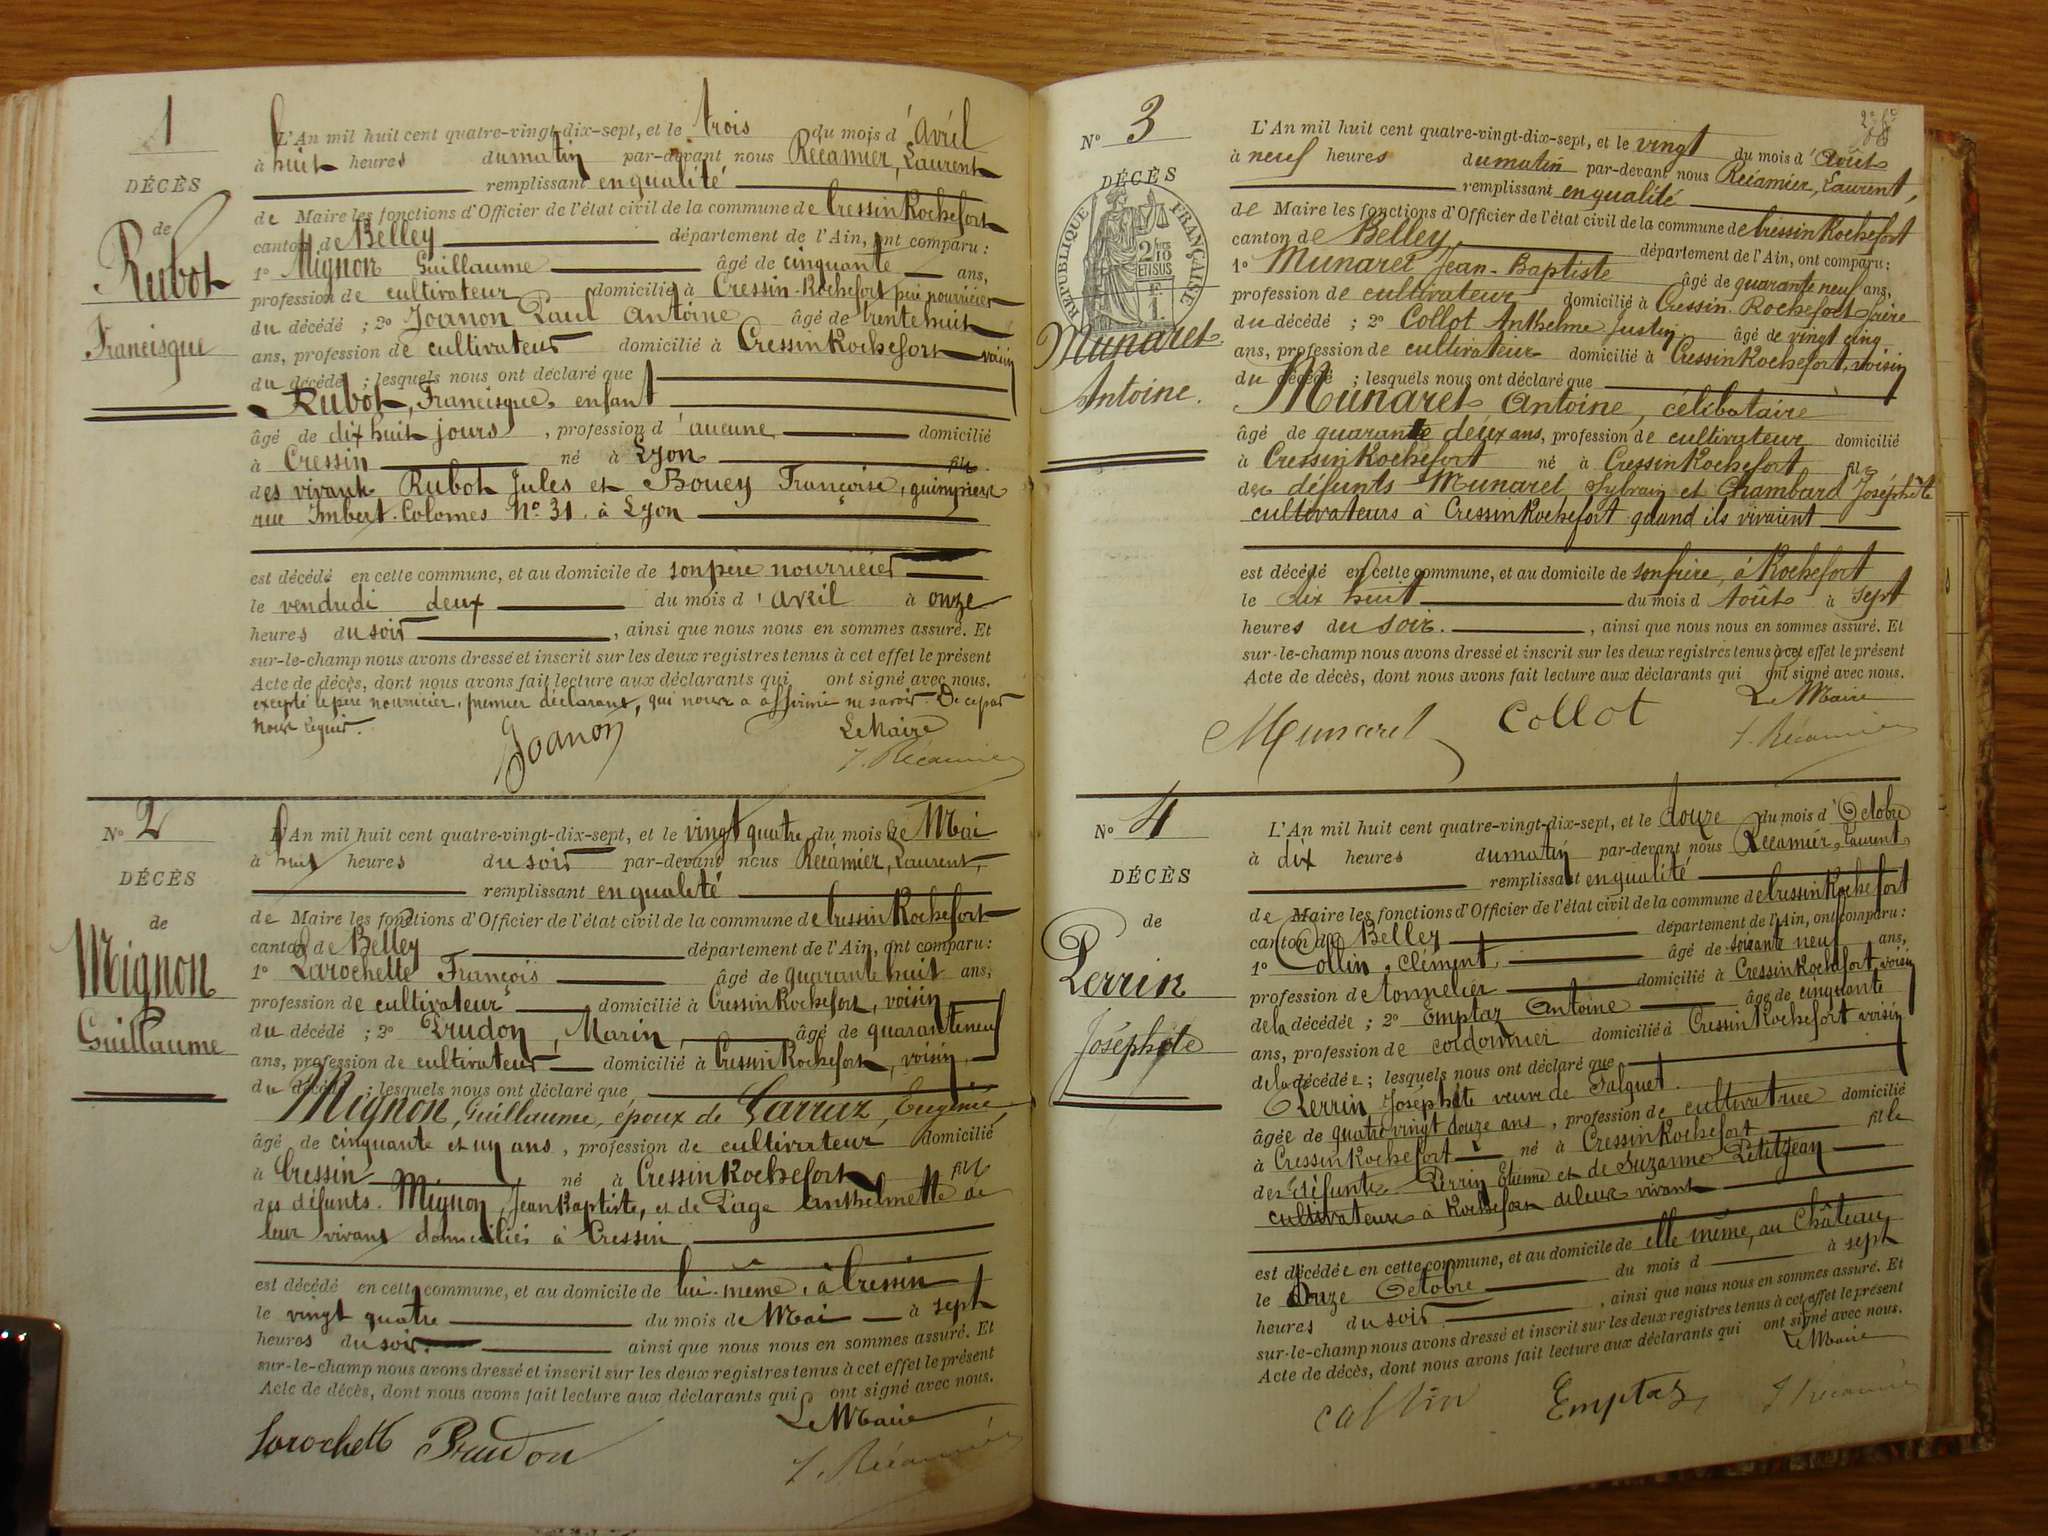 1
DÉCÈS
de
Rubot
Francisque
L'An mil huit cent quatre-vingt-dix-sept, et le trois du mois d'Avril
à huit heures du matin par-devant nous Récamier, Laurent
remplissant en qualité
de Maire les fonctions d'Officier de l'état civil de la commune de Cressin Rochefort
canton de Belley département de l'Ain, ont comparu :
1º Mignon Guillaume âgé de cinquante ans,
profession de cultivateur domicilié à Cressin-Rochefort père nourricier
du décédé ; 2º Joanon Paul Antoine âgé de trente huit
ans, profession de cultivateur domicilié à Cressin Rochefort voisin
du décédé ; lesquels nous ont déclaré que
Rubot, Francisque, enfant
âgé de dix huit jours, profession d'aucune domicilié
à Cressin né à Lyon fils
des vivants Rubot Jules et Bouey Françoise,
rue Imbert-Colomes Nº 31 à Lyon
est décédé en cette commune, et au domicile de son père nourricier
le vendredi deux du mois d'avril à onze
heures du soir, ainsi que nous nous en sommes assuré. Et
sur-le-champ nous avons dressé et inscrit sur les deux registres tenus à cet effet le présent
Acte de décès, dont nous avons fait lecture aux déclarants qui ont signé avec nous.
excepté le père nourricier, premier déclarant, qui nous a affirmé ne savoir. De ce par
nous requis.
Joanon
Le Maire
J. Récamier
Nº 2
DÉCÈS
de
Mignon
Guillaume
L'An mil huit cent quatre-vingt-dix-sept, et le vingt quatre du mois de Mai
à huit heures du soir par-devant nous Récamier, Laurent,
remplissant en qualité
de Maire les fonctions d'Officier de l'état civil de la commune de Cressin Rochefort
canton de Belley département de l'Ain, ont comparu :
1º Larochette François âgé de quarante huit ans,
profession de cultivateur domicilié à Cressin Rochefort, voisin
du décédé ; 2º Prudon, Marin, âgé de quarante neuf
ans, profession de cultivateur domicilié à Cressin Rochefort, voisin,
du décédé ; lesquels nous ont déclaré que
Mignon, Guillaume, époux de Larruz, Eugénie,
âgé de cinquante et un ans, profession de cultivateur domicilié
à Cressin né à Cressin Rochefort fils
des défunts Mignon, Jean Baptiste, et de Page Anthelmette de
leur vivant domiciliés à Cressin
est décédé en cette commune, et au domicile de lui-même, à Cressin
le vingt quatre du mois de Mai à sept
heures du soir ainsi que nous nous en sommes assuré. Et
sur-le-champ nous avons dressé et inscrit sur les deux registres tenus à cet effet le présent
Acte de décès, dont nous avons fait lecture aux déclarants qui ont signé avec nous.
Larochett Prudon
Le Maire
J. Récamier
Nº 3
DÉCÈS
RÉPUBLIQUE FRANÇAISE
2/10 EN SUS
Munaret
Antoine.
L'An mil huit cent quatre-vingt-dix-sept, et le vingt du mois d'Août
à neuf heures du matin par-devant nous Récamier, Laurent,
remplissant en qualité
de Maire les fonctions d'Officier de l'état civil de la commune de Cressin Rochefort
canton de Belley département de l'Ain, ont comparu :
1º Munaret Jean-Baptiste âgé de quarante neuf ans,
profession de cultivateur domicilié à Cressin-Rochefort frère
du décédé ; 2º Collot Anthelme Justin âgé de vingt cinq
ans, profession de cultivateur domicilié à Cressin Rochefort, voisin
du décédé ; lesquels nous ont déclaré que
Munaret Antoine, célibataire
âgé de quarante deux ans, profession de cultivateur domicilié
à Cressin Rochefort né à Cressin Rochefort fils
des défunts Munaret Sylvain et Chambard Joséphte
cultivateurs à Cressin Rochefort quand ils vivaient
est décédé en cette commune, et au domicile de son frère, à Rochefort
le dix huit du mois d'Août à sept
heures du soir., ainsi que nous nous en sommes assuré. Et
sur-le-champ nous avons dressé et inscrit sur les deux registres tenus à cet effet le présent
Acte de décès, dont nous avons fait lecture aux déclarants qui ont signé avec nous.
Munaret Collot
Le Maire
J. Récamier
Nº 4
DÉCÈS
de
Perrin
Joséphte
L'An mil huit cent quatre-vingt-dix-sept, et le douze du mois d'Octobre
à dix heures du matin par-devant nous Récamier, Laurent,
remplissant en qualité
de Maire les fonctions d'Officier de l'état civil de la commune de Cressin Rochefort
canton de Belley département de l'Ain, ont comparu :
1º Collin, Clément, âgé de soixante neuf ans,
profession de tonnelier domicilié à Cressin Rochefort, voisin
de la décédée ; 2º Emptaz Antoine âgé de cinquante
ans, profession de cordonnier domicilié à Cressin Rochefort voisin
de la décédée ; lesquels nous ont déclaré que
Perrin Joséphte veuve de
âgée de quatre vingt douze ans, profession de cultivatrice domicilié
à Cressin Rochefort né à Cressin Rochefort fille
des défunts Perrin Etienne et de Suzanne Petitjean
cultivateurs à Rochefort de leur vivant
est décédée en cette commune, et au domicile de elle même, au Château
le Onze Octobre du mois d à sept
heures du soir, ainsi que nous nous en sommes assuré. Et
sur-le-champ nous avons dressé et inscrit sur les deux registres tenus à cet effet le présent
Acte de décès, dont nous avons fait lecture aux déclarants qui ont signé avec nous.
Le Maire
collin Emptaz J Récamier